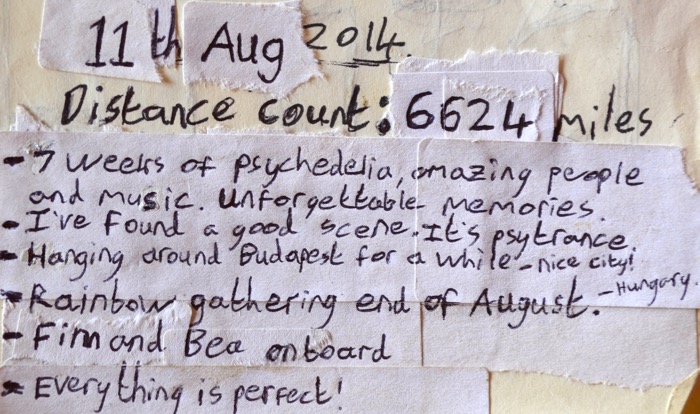 11th Aug 2014.
Distance count: 6624 miles
- 7 weeks of psychedelia, amazing people
and music. Unforgettable memories.
- I've found a good scene. It's psytrance.
- Hanging around Budapest for a while - nice city!
- Rainbow gathering end of August. - Hungary.
- Finn and Bea onboard
- Everything is perfect!